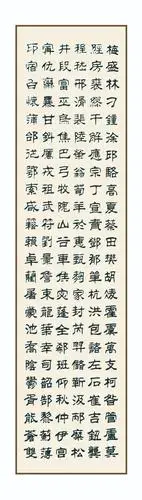 梅盛林刁鍾徐邱駱高夏蔡田樊胡凌霍虞萬支柯昝管盧莫
經房裘繆干解應宗丁宣賁鄧郁單杭洪包諸左石崔吉鈕龔
程嵇邢滑裴陸榮翁荀羊於惠甄曲家封芮羿儲靳汲邴糜松
井段富巫烏焦巴弓牧隗山谷車侯宓蓬全郗班仰秋仲伊宮
甯仇欒暴甘鈄厲戎祖武符劉景詹束龍葉幸司韶郜黎薊薄
印宿白懷蒲邰從鄂索咸籍賴卓藺屠蒙池喬陰鬱胥能蒼雙